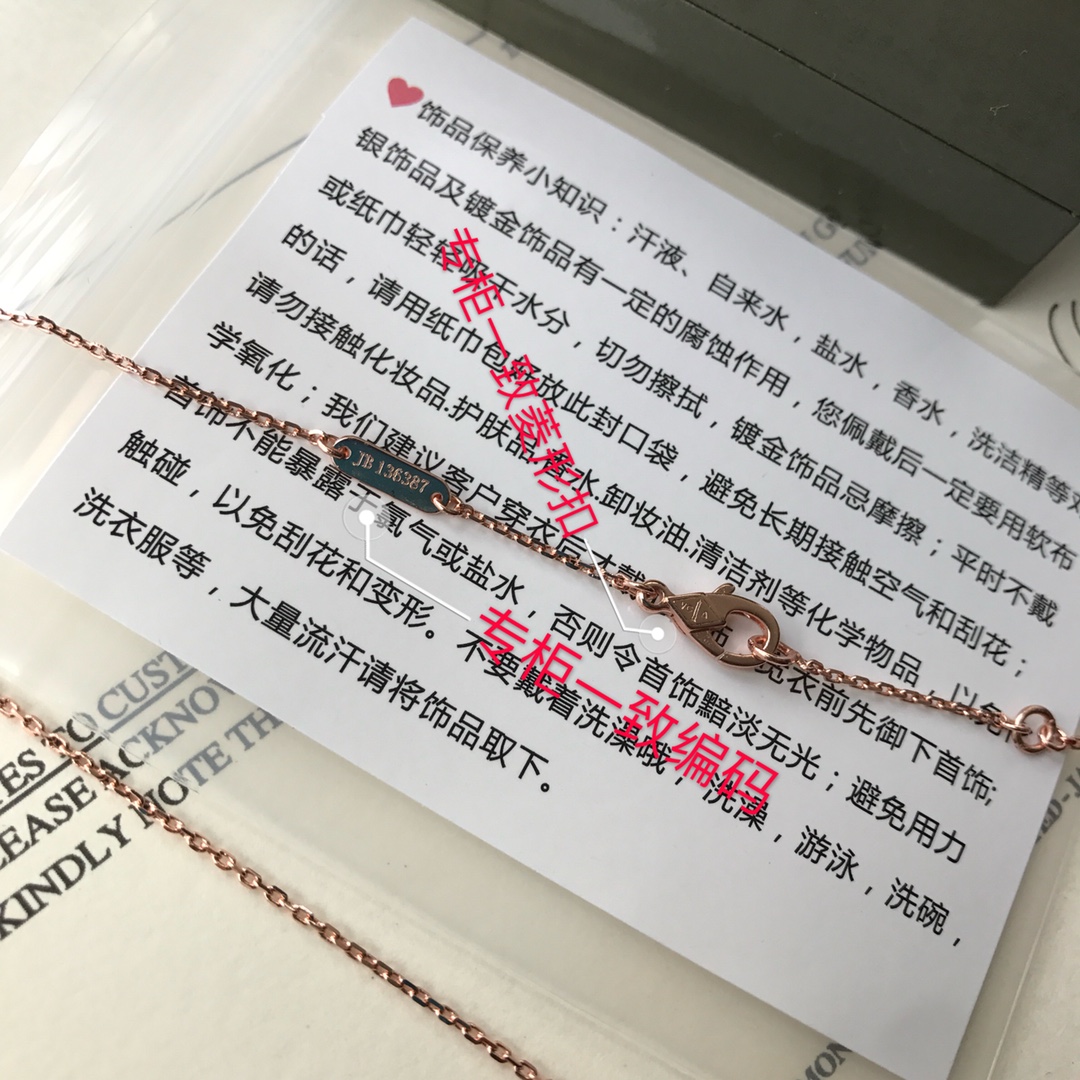 饰品保养小知识：汗液、自来水，盐水，香水，洗洁精等对
银饰品及镀金饰品有一定的腐蚀作用，您佩戴后一定要用软布
或纸巾轻轻吸干水分，切勿擦拭，镀金饰品忌摩擦；平时不戴
的话，请用纸巾包好放此封口袋，避免长期接触空气和刮花；
请勿接触化妆品.护肤品.香水.卸妆油.清洁剂等化学物品，以免
学氧化；我们建议客户穿衣后才戴 宽衣前先御下首饰;
首饰不能暴露于氯气或盐水，否则令首饰黯淡无光；避免用力
触碰，以免刮花和变形。不要戴着洗澡哦，洗澡，游泳，洗碗，
洗衣服等，大量流汗请将饰品取下。
专柜一致菱形扣
JB 136387
专柜一致编码
CUST
ACKNO
NOTE
KINDLY